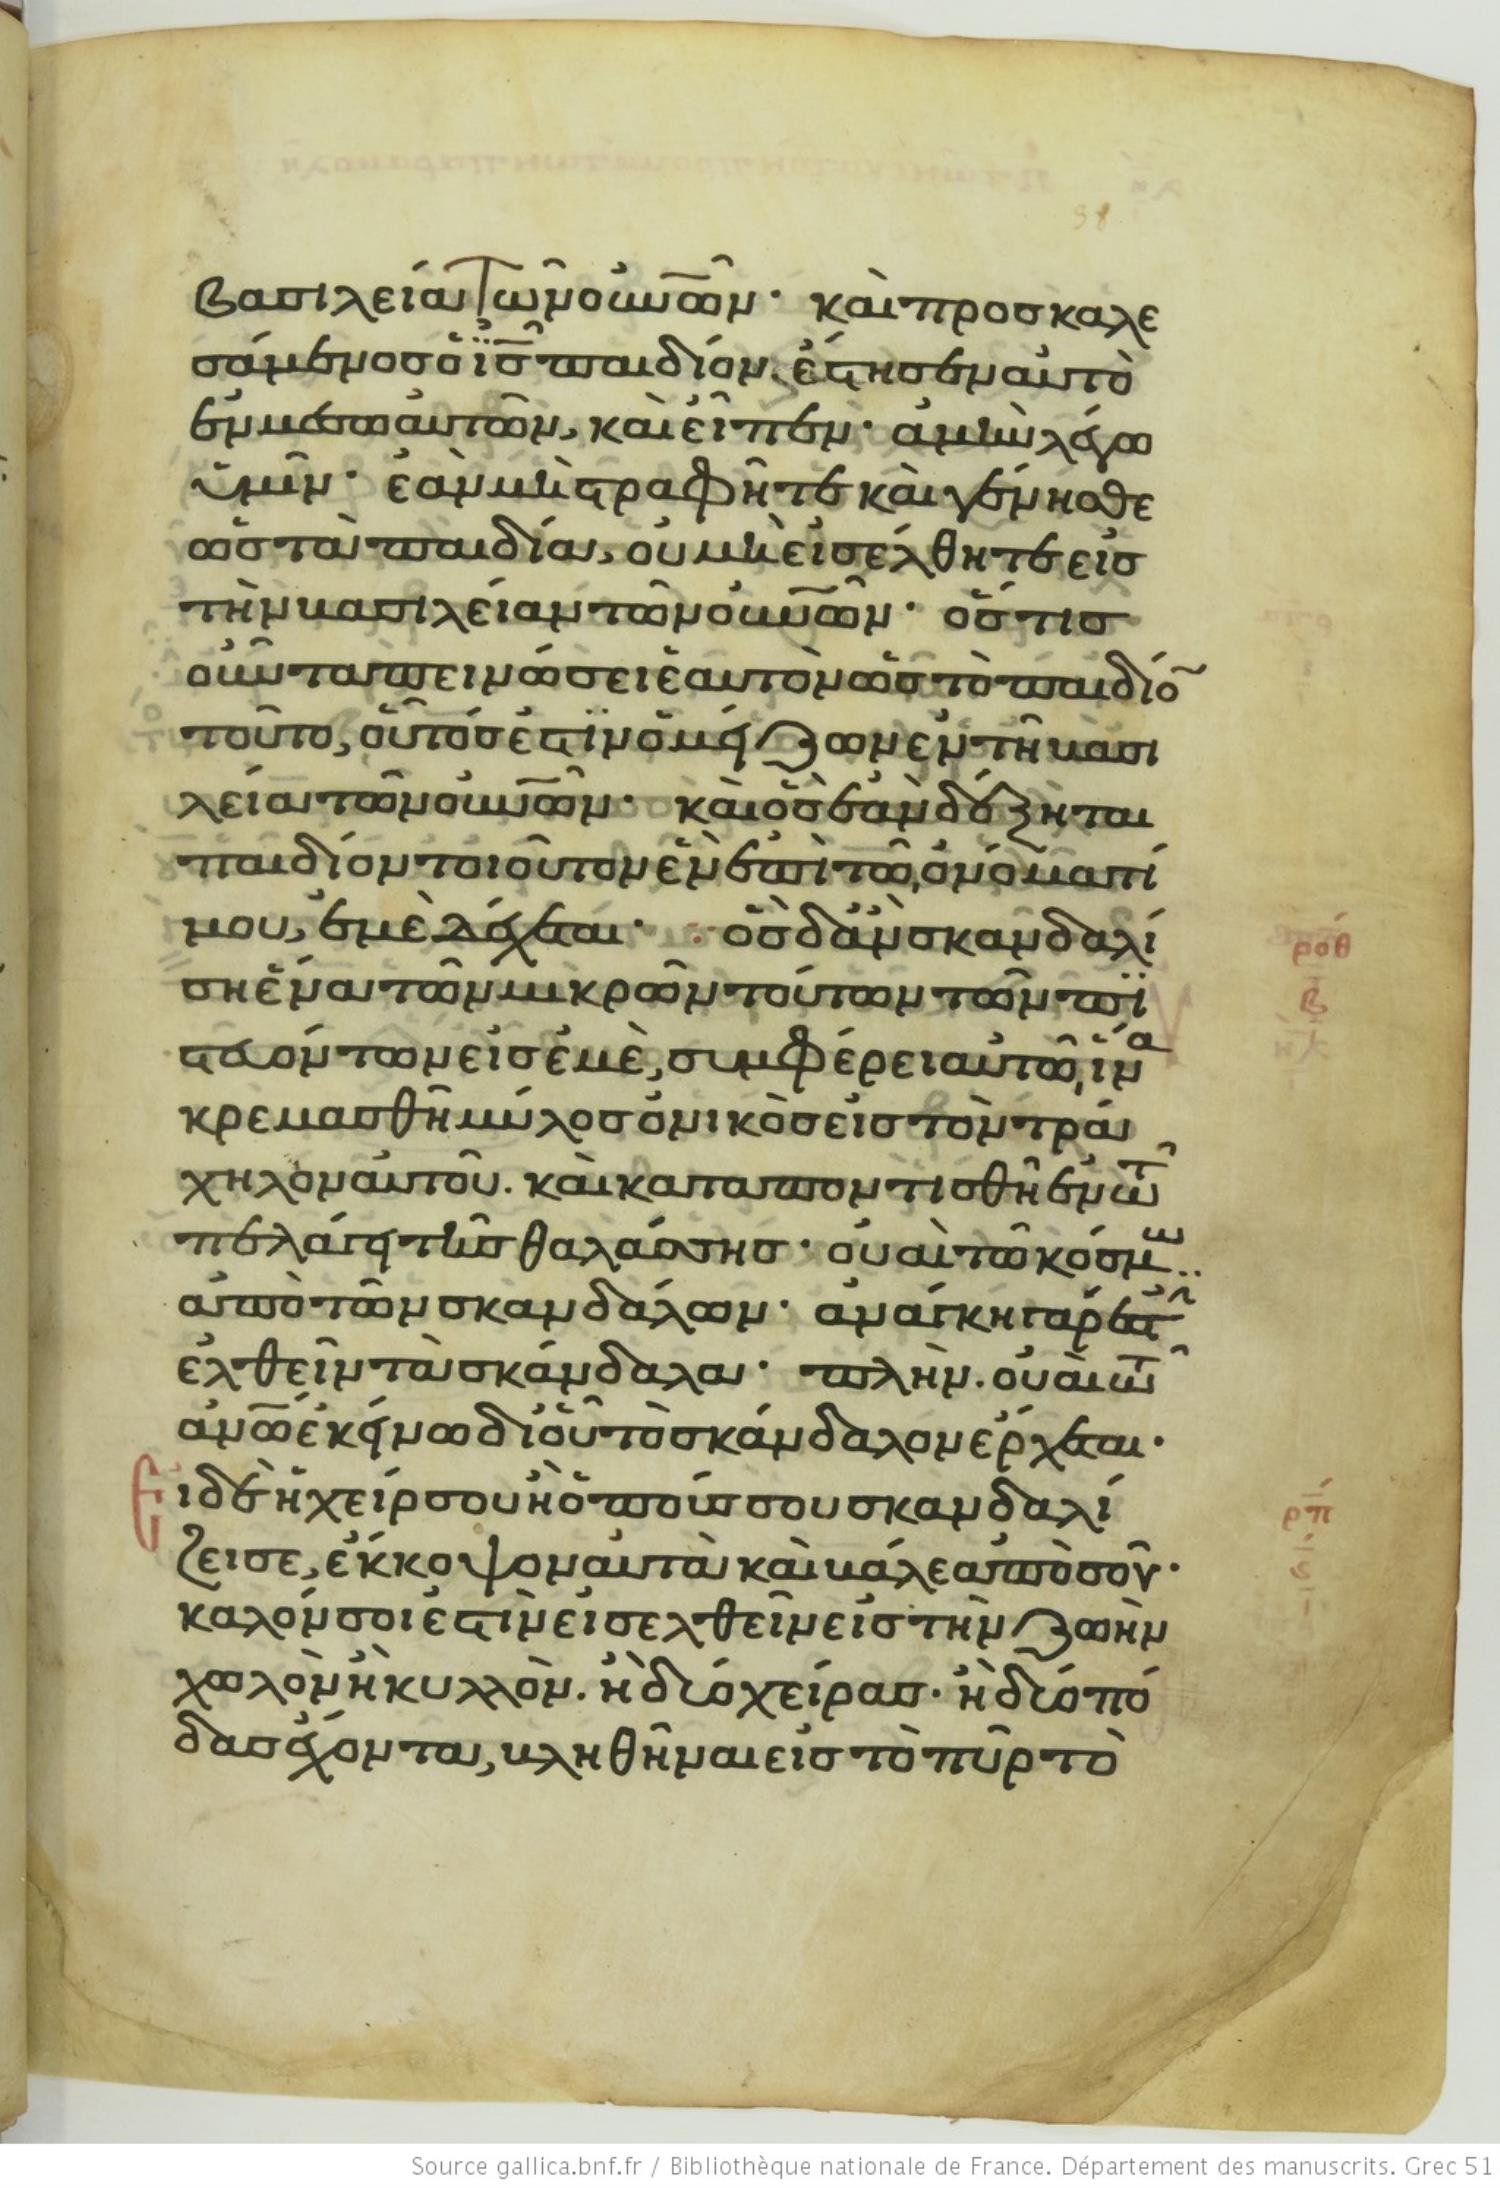 98
βασιλεία τῶν οὐνῶν· καὶ προσκαλε
σάμενος ὁ ἰς παιδίον, ἔστησεν αὐτὸ
ἐν μέσω αὐτῶν, καὶ εἶπεν· ἀμὴν λέγω
ὑμῖν· ἐὰν μὴ στραφῆτε καὶ γένησθε
ὡς τὰ παιδία, οὐ μὴ εἰσέλθητε εἰς
τὴν βασιλείαν τῶν οὐνῶν· ὅστις
οὖν ταπεινώσει ἑαυτὸν ὡς τὸ παιδίο
τοῦτο, οὗτός ἐστιν ὁ μείζων ἐν τῆ βασι
λεία τῶν οὐνῶν· καὶ ὃς ἐὰν δέξηται
παιδίον τοιοῦτον ἓν ἐπὶ τῶ ὀνόματί
μου, ἐμὲ δέχεται· ὃς δ' ἂν σκανδαλί
ση ἕνα τῶν μικρῶν τούτων τῶν πι
στευόντων εἰς ἐμὲ, συμφέρει αὐτῶ, ἵνα
κρεμασθῆ μύλος ὀνικὸς εἰς τὸν τρά
χηλον αὐτοῦ. καὶ καταποντισθῆ ἐν τῶ
πελάγει τῆς θαλάσσης· οὐαὶ τῶ κόσμω
ἀπὸ τῶν σκανδάλων· ἀνάγκη γάρ ἐστιν
ἐλθεῖν τὰ σκάνδαλα· πλὴν. οὐαὶ τῶ
ἀνῶ ἐκείνω δι' οὗ τὸ σκάνδαλον ἔρχεται·
Εἰ δὲ ἡ χείρ σου ἢ ὁ πούς σου σκανδαλί
ζει σε, ἔκκοψον αὐτὰ καὶ βάλε ἀπὸ σοῦ·
καλόν σοι ἐστὶν εἰσελθεῖν εἰς τὴν ζωὴν
χωλὸν ἢ κυλλὸν. ἢ δύο χείρας· ἢ δύο πό
δας ἔχοντα, βληθῆναι εἰς τὸ πῦρ τὸ
ροθ
β
ρπ
ς
Source gallica.bnf.fr / Bibliothèque nationale de France. Département des manuscrits. Grec 51